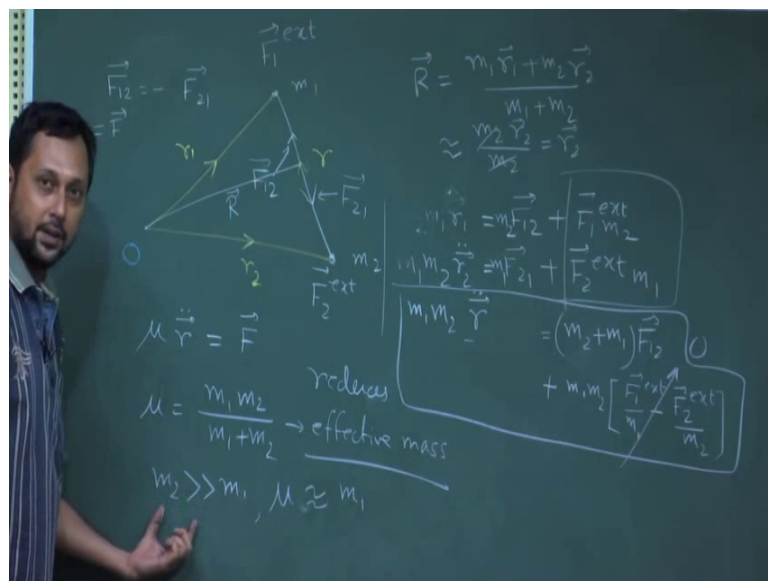 F⃗₁ᵉˣᵗ
F⃗₁₂ = - F⃗₂₁
= F⃗
m₁
r₁
r
F⃗₁₂
R⃗
← F⃗₂₁
O
r₂
m₂
F⃗₂ᵉˣᵗ
μ r̈⃗ = F⃗
μ = m₁m₂ / (m₁+m₂) → effective mass
reduces
m₂ >> m₁, μ ≈ m₁
R⃗ = (m₁r⃗₁ + m₂r⃗₂) / (m₁ + m₂)
≈ m₂r⃗₂ / m₂ = r⃗₂
m₁ r̈₁ = m₂F⃗₁₂ + F⃗₁ᵉˣᵗ m₂
m₁m₂ r̈⃗₂ = m₁F⃗₂₁ + F⃗₂ᵉˣᵗ m₁
m₁m₂ r̈⃗ = (m₂+m₁) F⃗₁₂
+ m₁m₂ [F⃗₁ᵉˣᵗ/m₁ - F⃗₂ᵉˣᵗ/m₂]
O